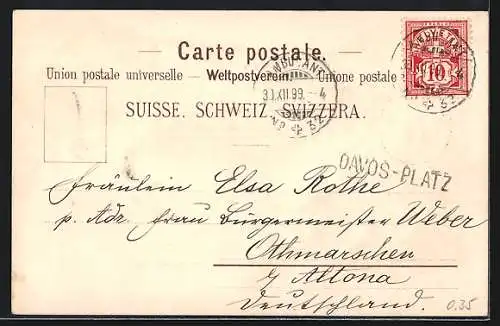 Carte postale.
Union postale universelle – Weltpostverein – Unione postale
SUISSE. SCHWEIZ. SVIZZERA.
AMBULANT
31.XII.99. – 4
No 32
AMBULANT
No 32
10
DAVOS-PLATZ
Fräulein Elsa Rothe
p. Adr. Frau Bürgermeister Weber
Othmarschen
b/ Altona
Deutschland.
0.35